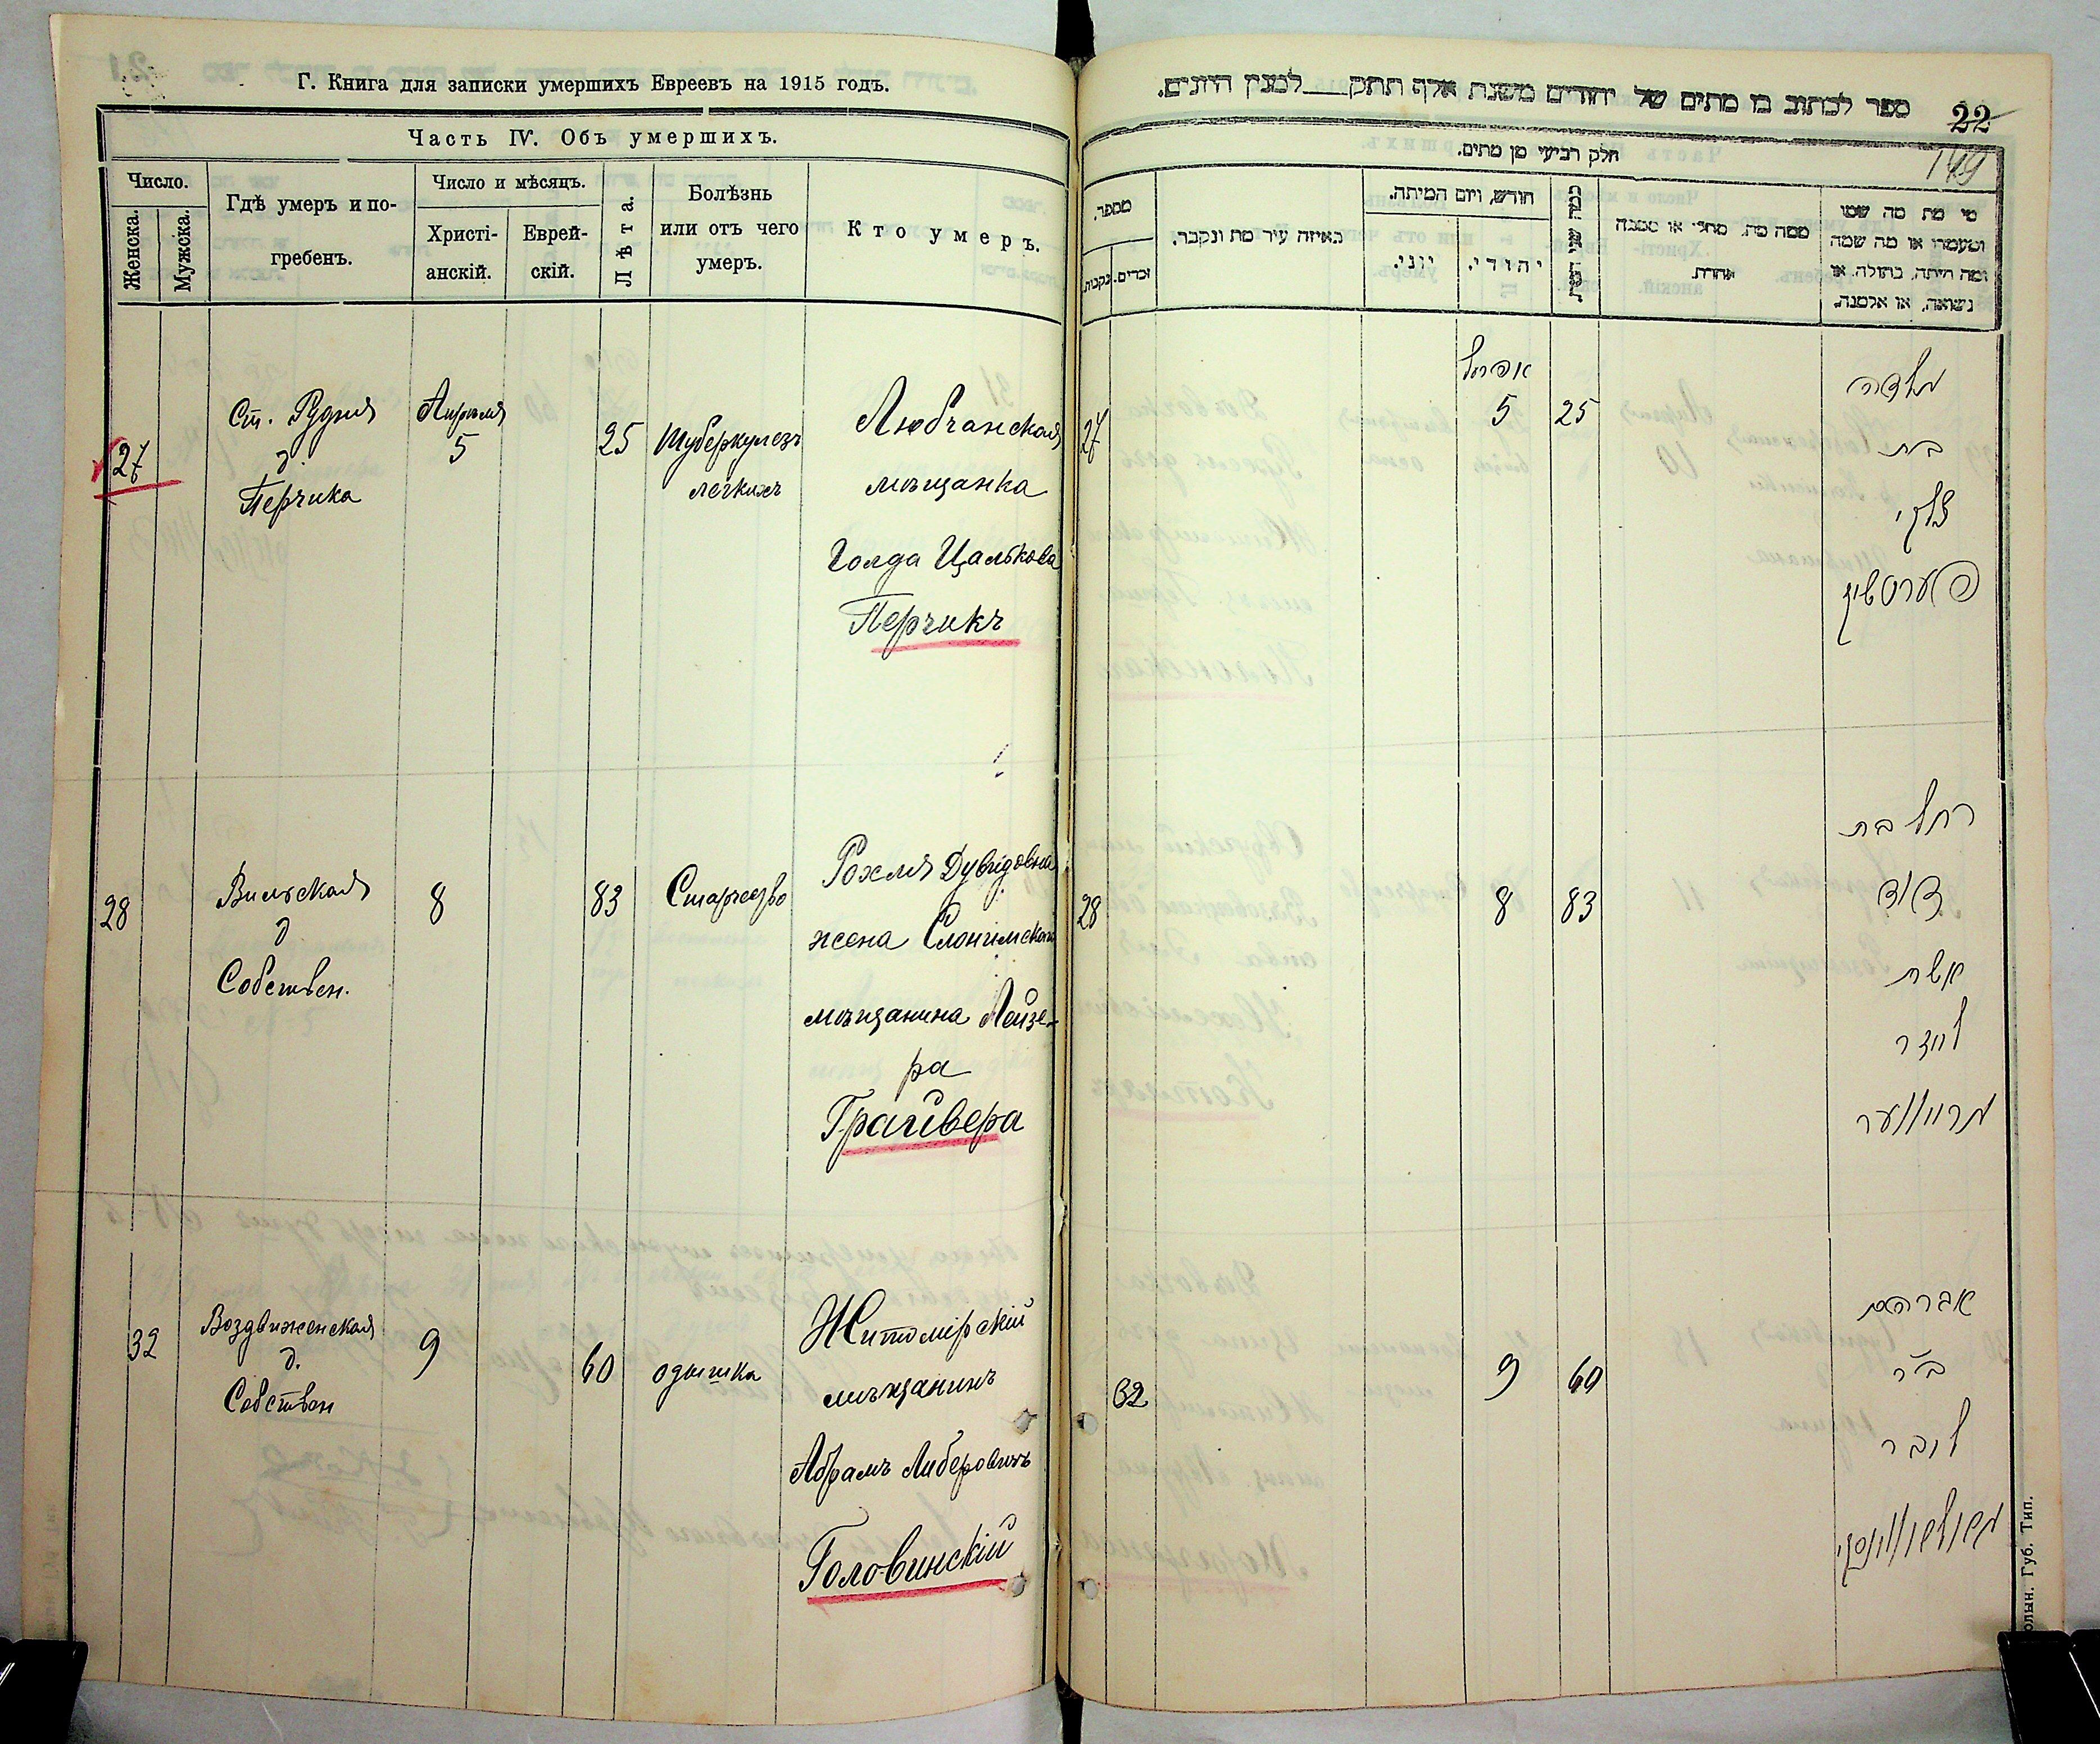 Г. Книга для записки умершихъ Евреевъ на 1915 годъ.
Часть IV. Объ умершихъ.
Число.
Женска.
Мужска.
Гдѣ умеръ и по-
гребенъ.
Число и мѣсяцъ.
Христі-
анскій.
Еврей-
скій.
Лѣта.
Болѣзнь
или отъ чего
умеръ.
Кто умеръ.
27
Ст. Рудня
д
Перчика
Апрѣля
5
25
Туберкулезъ
легкихъ
Любчанская
мѣщанка
Голда Цалькова
Перчикъ
28
Вильская
д
Собствен.
8
83
Старчество
Рохля Дувидовна
жена Слонимского
мѣщанина Лейзе-
ра
Грайвера
32
Воздвиженская
д.
Собствен
9
60
одышка
Житомірскій
мѣщанинъ
Абрамъ Либеровичъ
Головинскій
ספר לכתוב בו מתים של יהודים משנת אלף תתק לטנין היונים.
22
149
חלק רביעי מן מתים.
מספר.
נקבות.
זכרים.
באיזה עיר מת ונקבר.
חודש, ויום המיתה.
יוני.
יהודי.
כמה שני חייו
ממה מת. מחלי או מסבה
אחרת.
מי מת מה שמו
ומעמדו או מה שמה
ומה היתה. בתולה. או
נשואה. או אלמנה.
27
אפריל
5
25
גאלדה
בת
צלקי
פערטשיק
28
8
83
רחל בת
דוד
אשת
ליזר
גרייווער
32
9
60
אברהם
ב״ר
ליבר
גאלאווינסקי
олын. Губ. Тип.